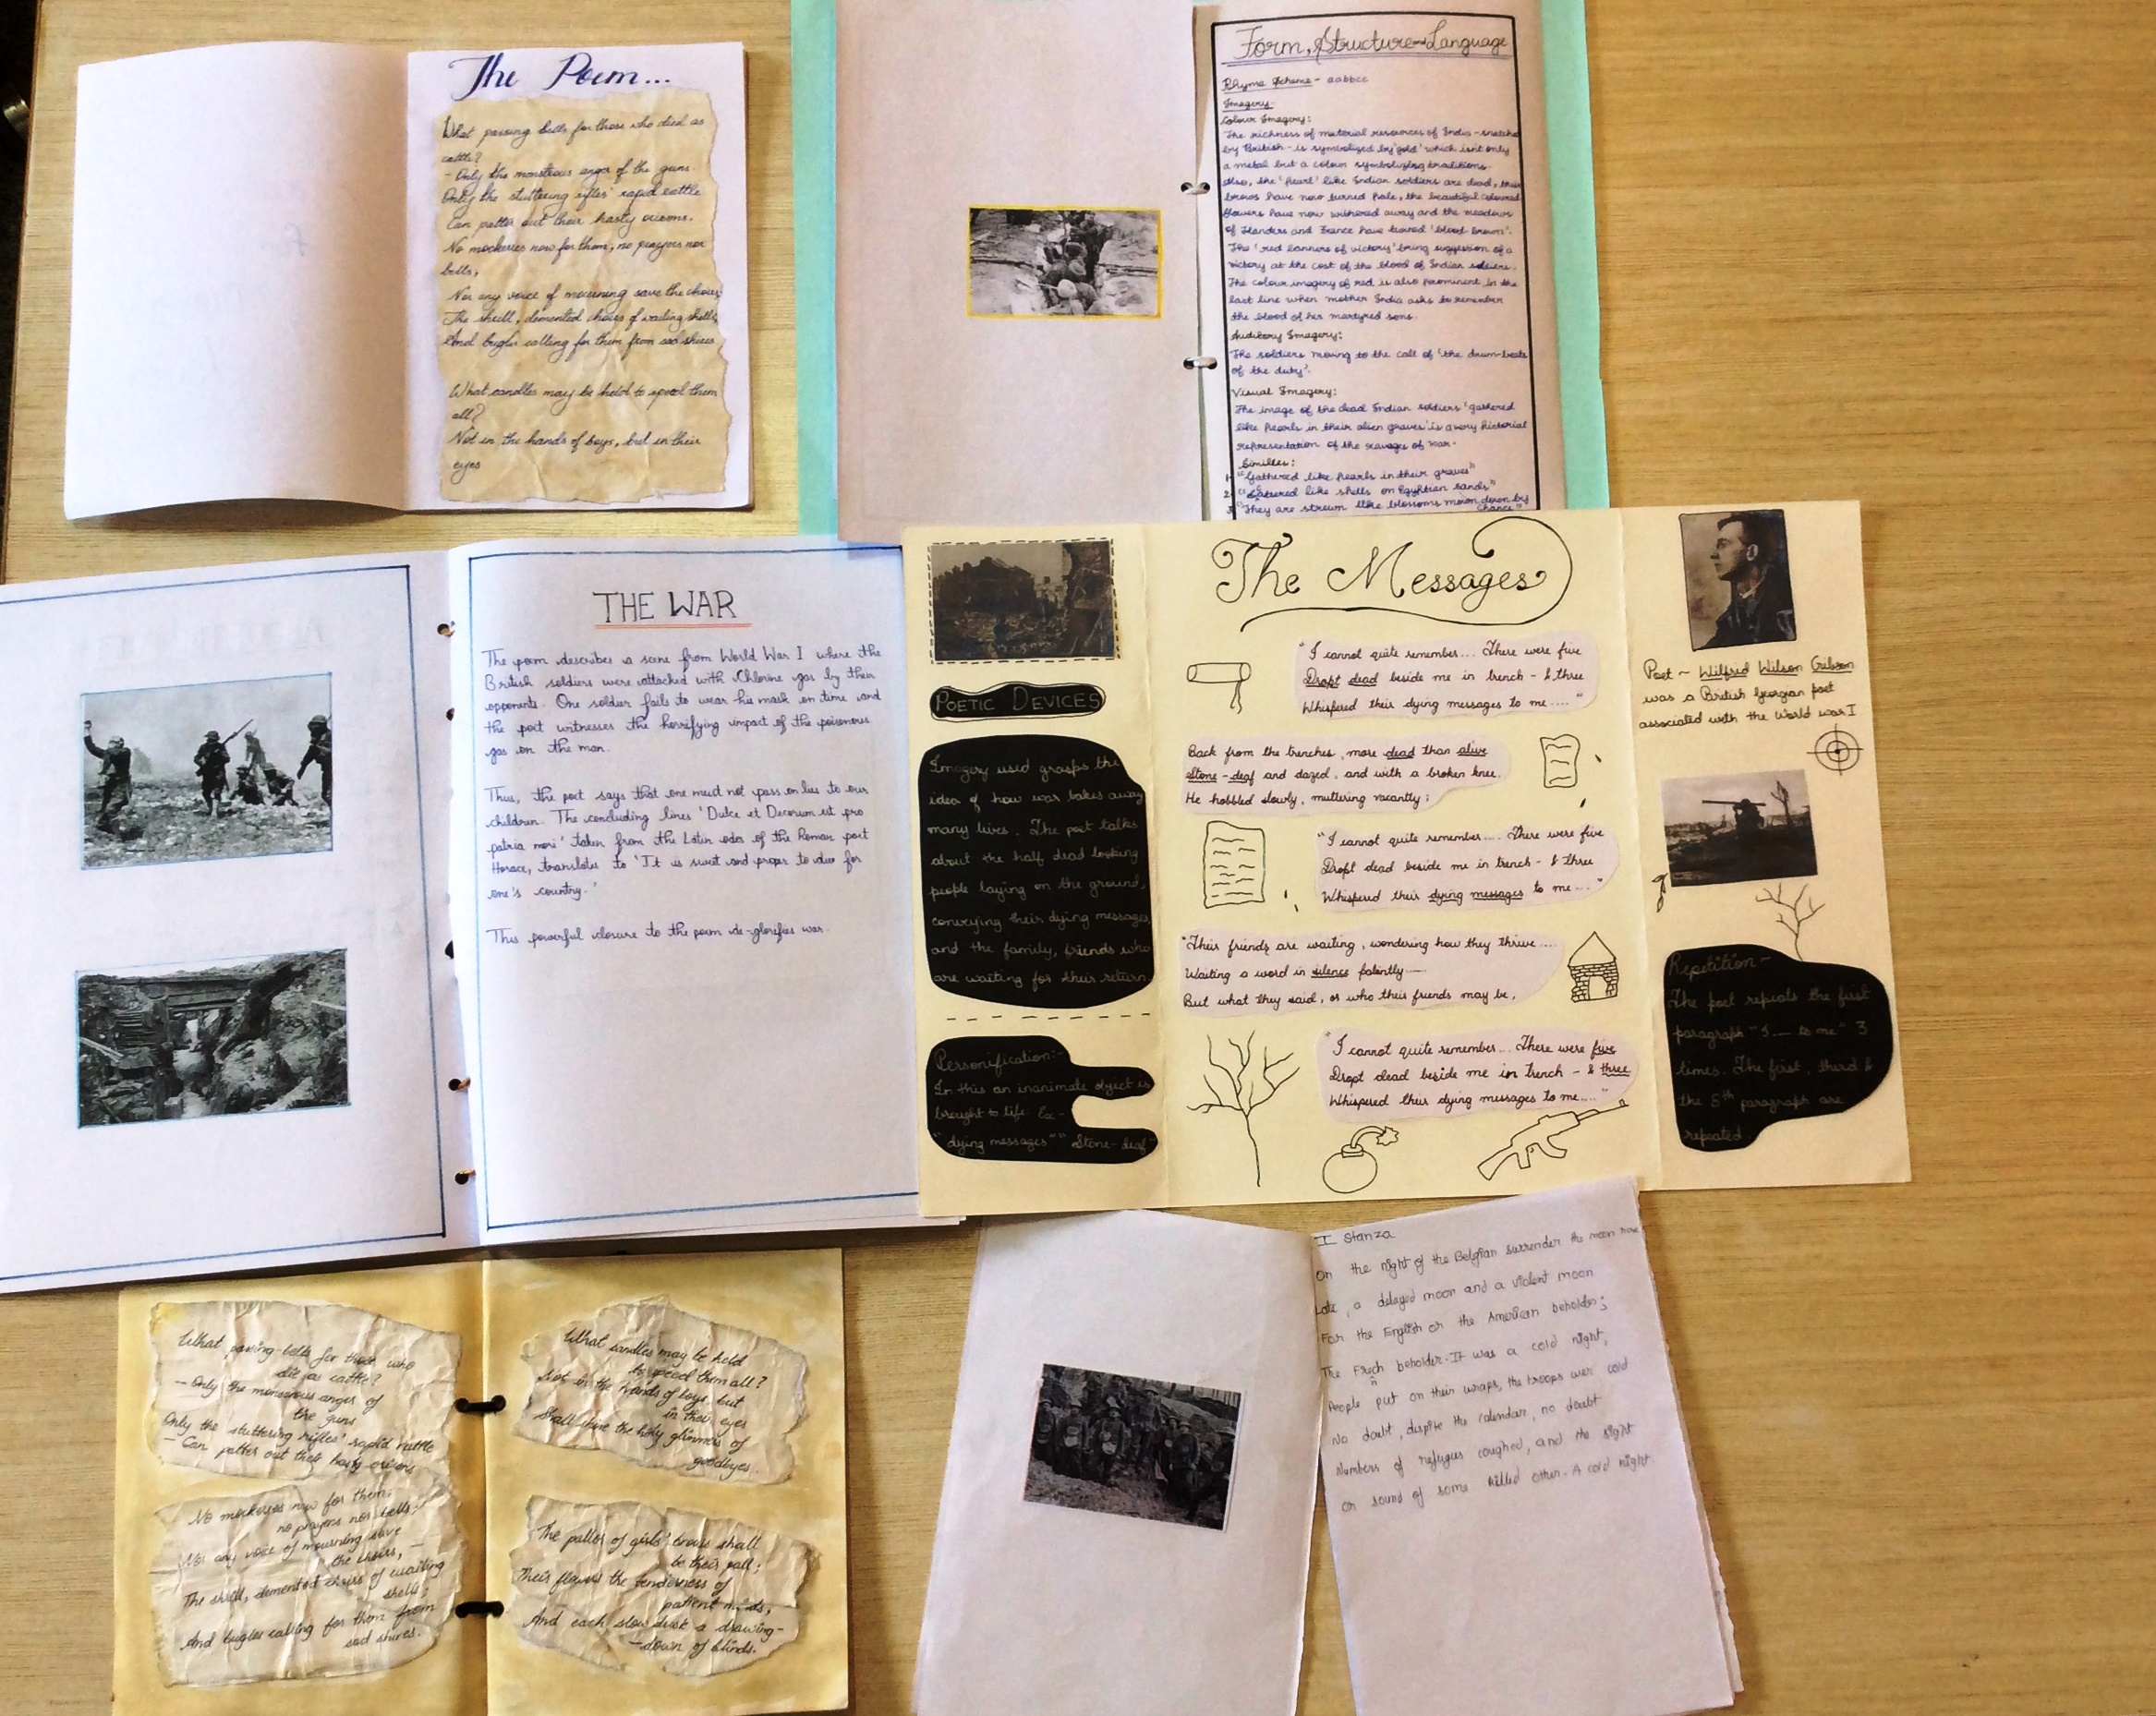 The Poem...
What passing bells for those who died as
cattle?
- Only the monstrous anger of the guns.
Only the stuttering rifles' rapid rattle
Can patter out their hasty orisons.
No mockeries now for them, no prayers nor
bells,
Nor any voice of mourning save the choirs,
The shrill, demented choirs of wailing shells,
And bugles calling for them from sad shires
What candles may be held to speed them
all?
Not in the hands of boys, but in their
eyes
Form, Structure and Language
Rhyme Scheme - aabbcc
Imagery-
Colour Imagery:
The richness of material resources of India - snatched
by British - is symbolized by 'gold' which isn't only
a metal but a colour symbolizing traditions.
Also, the 'pearl' like Indian soldiers are dead, their
brows have now turned pale, the beautiful coloured
flowers have now withered away and the meadows
of Flanders and France have turned 'blood-brown'.
The 'red banners of victory' bring suggestion of a
victory at the cost of the blood of Indian soldiers.
The colour imagery of red is also prominent in the
last line when mother India asks to remember
the blood of her martyred sons.
Auditory Imagery:
The soldiers moving to the call of 'the drum-beats
of the duty'.
Visual Imagery:
The image of the dead Indian soldiers 'gathered
like pearls in their alien graves' is a very historial
representation of the ravages of war.
Similes:
1. "Gathered like pearls in their graves"
2. "Scattered like shells on Egyptian sands"
3. "They are strewn like blossoms mown down by
chance"
THE WAR
The poem describes a scene from World War I where the
British soldiers were attacked with Chlorine gas by their
opponents. One soldier fails to wear his mask on time and
the poet witnesses the horrifying impact of the poisonous
gas on the man.
Thus, the poet says that one must not pass on lies to our
children. The concluding lines 'Dulce et Decorum est pro
patria mori' taken from the Latin odes of the Roman poet
Horace, translates to 'It is sweet and proper to die for
one's country.'
This powerful closure to the poem de-glorifies war.
POETIC DEVICES
Imagery used grasps the
idea of how war takes away
many lives. The poet talks
about the half dead looking
people laying on the ground,
conveying their dying messages,
and the family, friends who
are waiting for their return
Personification:-
In this an inanimate object is
brought to life. Ex-
"dying messages" "Stone-deaf"
The Messages
"I cannot quite remember... There were five
Dropt dead beside me in trench - & three
Whispered their dying messages to me...."
Back from the trenches, more dead than alive
Stone-deaf and dazed, and with a broken knee,
He hobbled slowly, muttering vacantly:
"I cannot quite remember.... There were five
Dropt dead beside me in trench - & three
Whispered their dying messages to me...."
"Their friends are waiting, wondering how they thrive....
Waiting a word in silence patently----
But what they said, or who their friends may be,
"I cannot quite remember... There were five
Dropt dead beside me in trench - & three
Whispered their dying messages to me...."
Poet ~ Wilfred Wilson Gibson
was a British Georgian poet
associated with the World war I
Repetition -
The poet repeats the first
paragraph "I.... to me" 3
times. The first, third &
the 5th paragraph are
repeated.
What passing-bells for those who
die as cattle?
- Only the monstrous anger of
the guns
Only the stuttering rifles' rapid rattle
- Can patter out their hasty orisons
No mockeries now for them;
no prayers nor bells;
Nor any voice of mourning save
the choirs, -
The shrill, demented choirs of wailing
shells;
And bugles calling for them from
sad shires.
What candles may be held
to speed them all?
Not in the hands of boys, but
in their eyes
Shall shine the holy glimmers of
goodbyes.
The pallor of girls' brows shall
be their pall;
Their flowers the tenderness of
patient minds,
And each slow dusk a drawing-
-down of blinds.
I Stanza
On the night of the Belgian surrender the moon rose
Late, a delayed moon and a violent moon
For the English or the American beholder;
The French beholder. It was a cold night,
People put on their wraps, the troops were cold
No doubt, despite the calendar, no doubt
Numbers of refugees coughed, and the sight
Or sound of some killed other. A cold night.